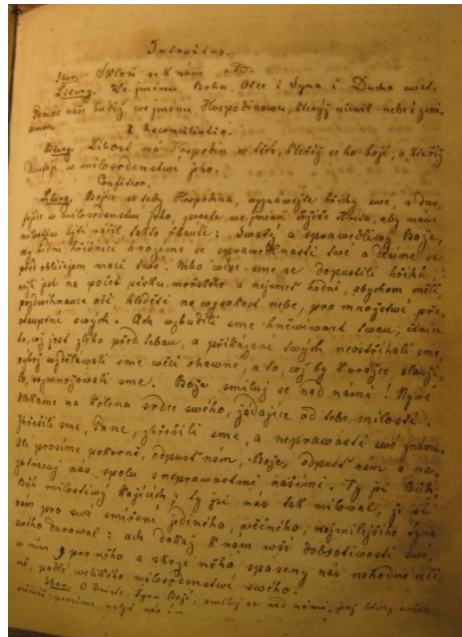 Introitus.
Sbor. Skloň se k nám
Liturg. We jménu Boha, Otce i Syna i Ducha swat.
Pomoc naše budiž we jménu Hospodinowu, kterýž učinil nebe i zemi.
I Reconciliatio.
Liturg. Libost má Hospodin w těch, kteříž se ho bojí, a kteříž
daufají w milosrdenstwí jeho.
Confiteor.
Liturg. Bojíce se tedy Hospodina, wyznáwejte hříchy swé, a dau-
fajíce w milosrdenstwí jeho, proste we jménu Ježíše Krista, aby wám
milostiw býti ráčil takto řkauce: Swatý a sprawedliwý Bože,
my bídní hříšníci hrozíme se sprawedlnosti twé a
před obličejem moci twé. Nebo wíce sme se dopustili hříchů
nežli jest na počet písku mořského a nejsme hodni, abychom měli,
pozdwihnauce očí hleděti na wysokost nebe, pro množstwí pře-
stupení swých. Ach wzbudili sme hněwiwost twau, činíce
to, což jest zlého před tebau, a přikázaní twých neostříhali sme,
nýbrž wzdělawali sme wěci ohawné, a to, což by
rozmnožowali sme. Bože smiluj se nad námi! Nyní
klekáme na kolena srdce swého, žádajíce od tebe milosti.
Zhřešili sme, Pane, zhřešili sme, a neprawosti swé známe.
Ale prosíme pokorně, odpusť nám, Bože, odpusť nám a ne-
zatracuj nás spolu s neprawostmi našimi. Ty jsi Bůh
Bůh milostiwý kajících; ty jsi nás tak milowal, že si
nám pro swé smíření jediného, wěčného, nejmilejšího Syna
swého darowal: ach dokaž k nám wší dobrotiwosti swé,
a nám pro něho a skrze něho spaseny nás nehodné učiň
podlé welikého milosrdenstwí swého.
Sbor. O Kriste, Synu Boží, smiluj se nad námi, jenž hříchy swěta
snímáš: prosíme